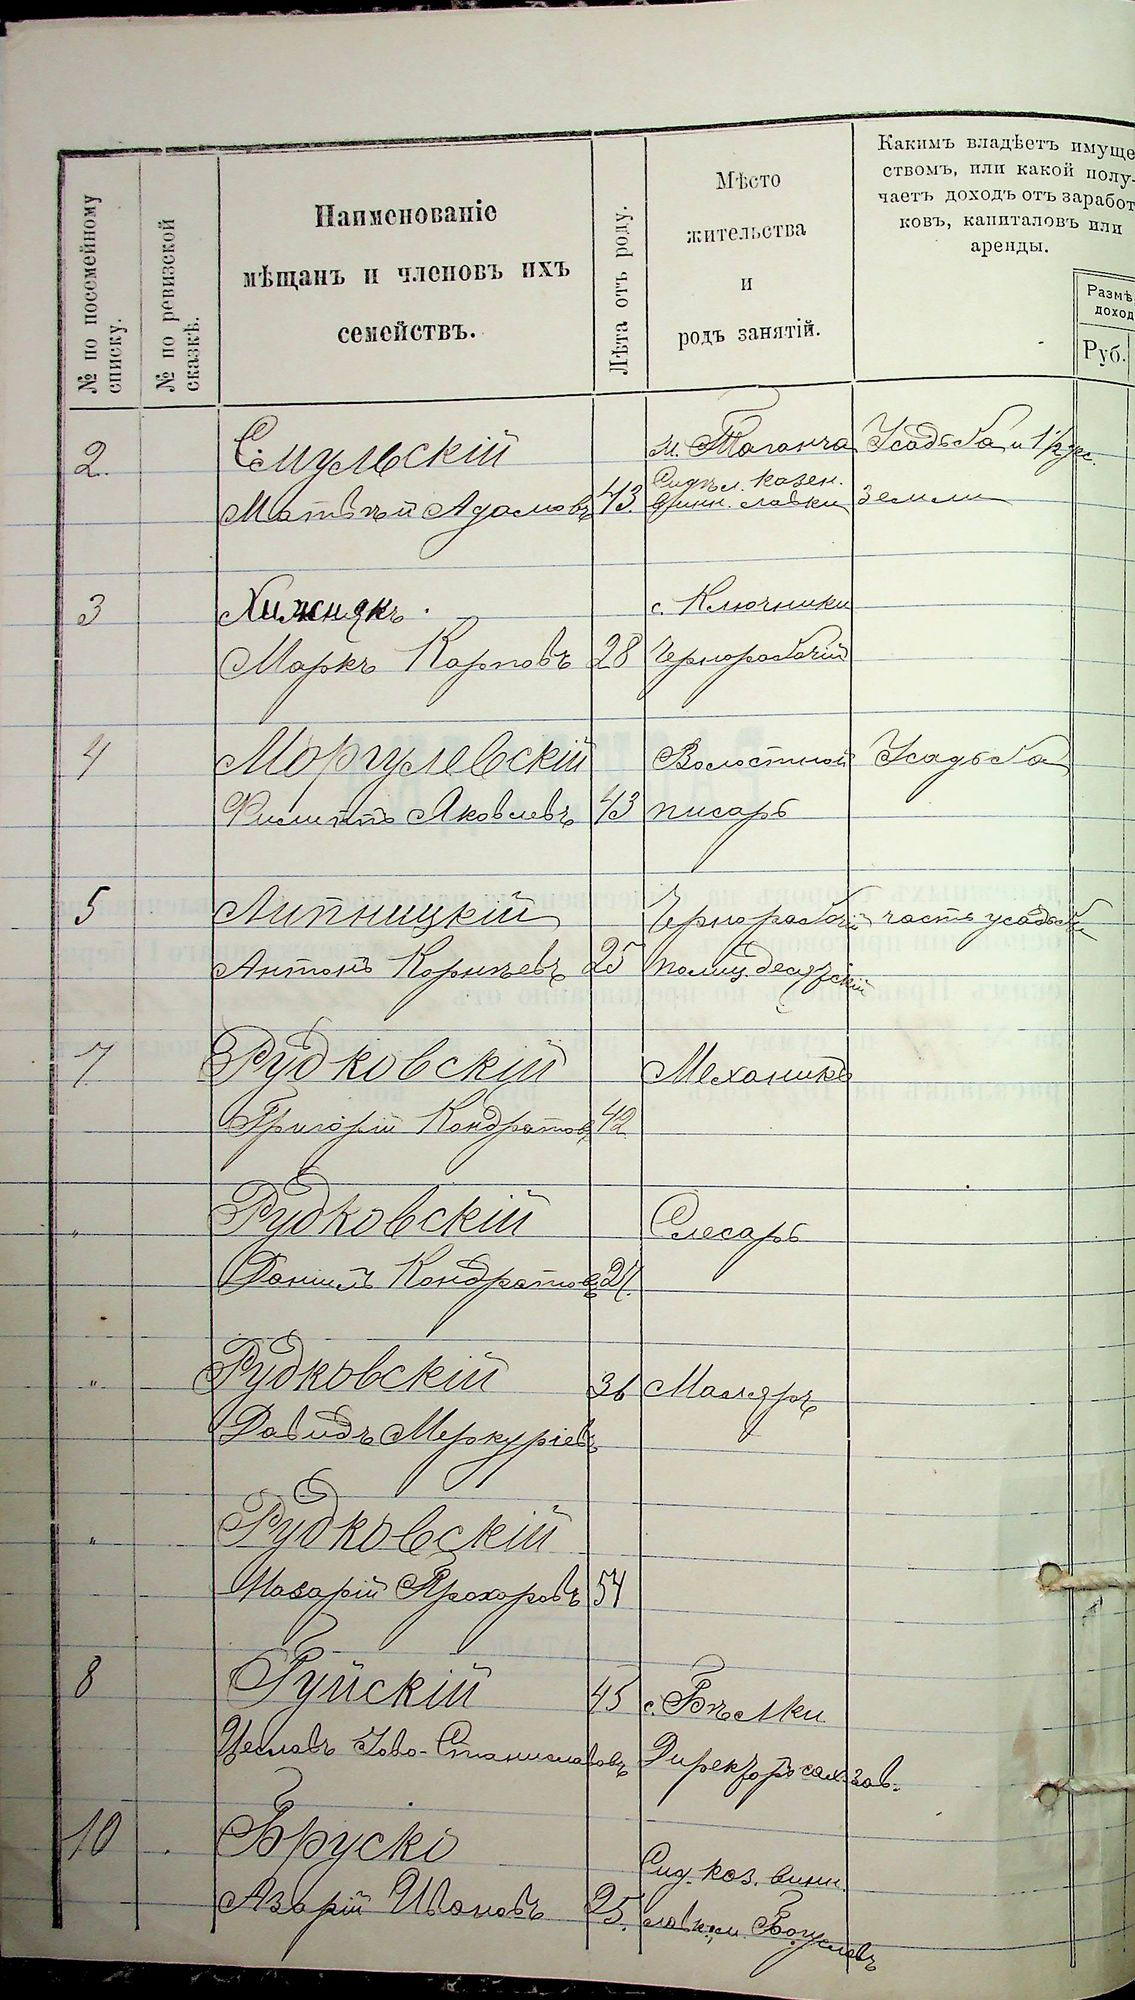 № по посемейному списку.
№ по ревизской сказкѣ.
Наименованіе
мѣщанъ и членовъ ихъ
семействъ.
Лѣта отъ роду.
Мѣсто
жительства
и
родъ занятій.
Какимъ владѣетъ имуще
ствомъ, или какой полу-
чаетъ доходъ отъ заработ
ковъ, капиталовъ или
аренды.
Размѣ
доход
Руб.
2. Смульскій м. Таганча Усадьба и 1½ дес.
Сидѣл. казен.
Матвѣй Адамовъ 43 винн. лавки земли
3 Хижнякъ. с. Ключники
Маркъ Карповъ 28 Чернорабочій
4 Моргулевскій Волостной Усадьба
Филиппъ Яковлевъ 43 писарь
5 Липницкій Чернорабочій часть усадьбы
Антонъ Корнѣевъ 25 полиц. десятскій
7 Рудковскій Механикъ
Григорій Кондратовъ 42
" Рудковскій Слесарь
Даниилъ Кондратовъ 27.
" Рудковскій 36 Маляръ
Давидъ Меркуріевъ
" Рудковскій
Назарій Прохоровъ 54
8 Руйскій 45 с.
Цеславъ Станиславовъ Директоръ сах. зав.
10 Бруско Сид. каз. винн.
Азарій Ивановъ 25. лавки м. Богуславъ